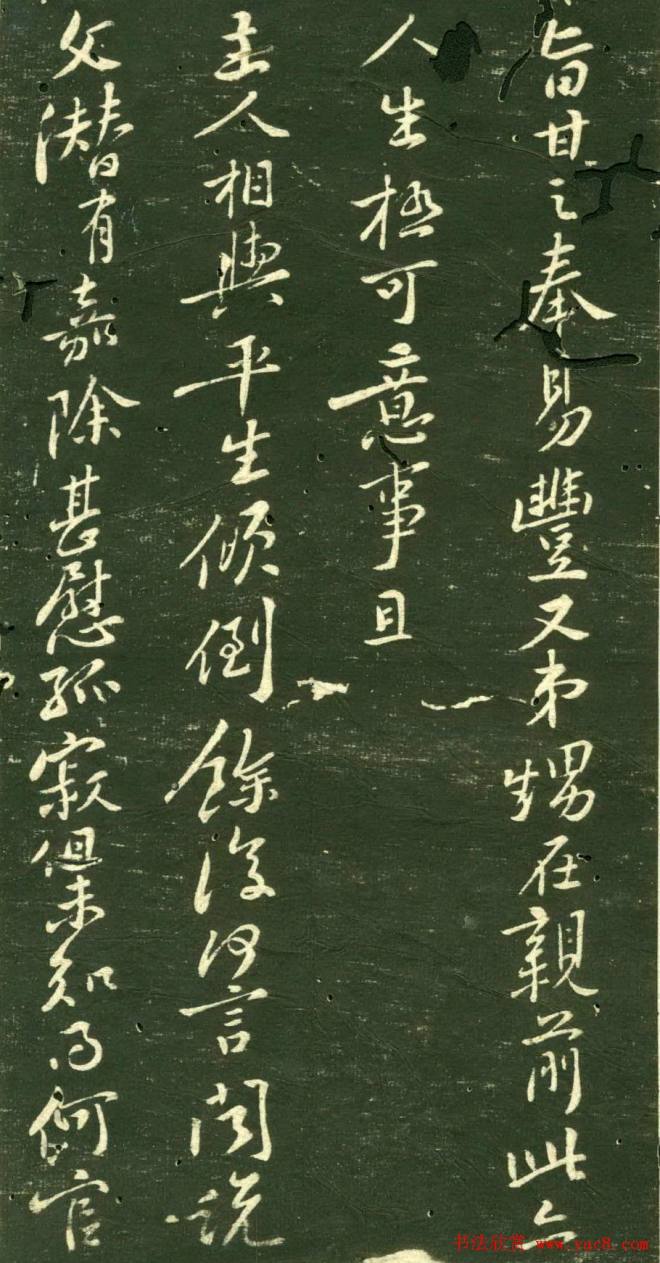 旨甘之奉易豐又弟甥在親前此亦
人生極可意事且
主人相與平生傾倒餘復何言聞説
父潜有嘉除甚慰孤寂但未知得何官
书法欣赏 www.yac8.com